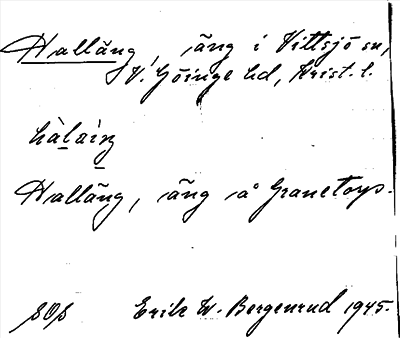 Halläng, äng i Vittsjö sn,
V. Göinge hd, Krist. l.
hàlaiŋ
Halläng, äng å Granetorp.
SOf
Erik W. Bergenrud 1945.